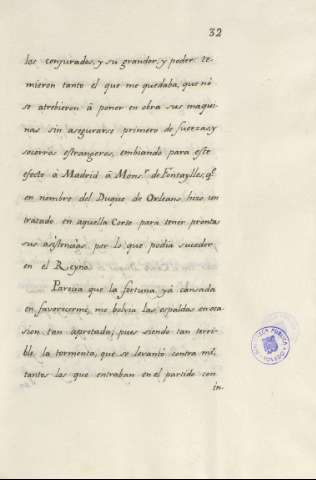 32
los conjurados, y su grandor, y poder te-
mieron tanto el que me quedaba, que nó
se atrebieron â poner en obra sus maqui-
nas sin asegurarse primero de fuerzas, y
socorros estrangeros, embiando para este
efecto â Madrid â Mons.r de Fontaylles, q.e
en nombre del Duque de Orleans hizo un
tratado en aquella Corte para tener prontas
sus asistencias, por lo que podia suceder
en el Reyno.
Parecia que la fortuna yà cansada
en favorecerme, me bolvia las espaldas en oca-
sion tan apretada; pues siendo tan terri-
ble la tormenta, que se levantó contra mi,
tantos los que entraban en el partido con
in-